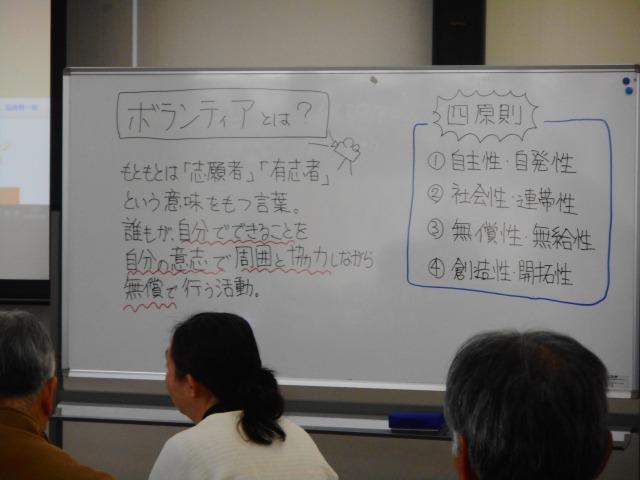 ボランティアとは？
もともとは「志願者」「有志者」
という意味をもつ言葉。
誰もが、自分でできることを
自分の意志で周囲と協力しながら
無償で行う活動。
四原則
① 自主性・自発性
② 社会性・連帯性
③ 無償性・無給性
④ 創造性・開拓性